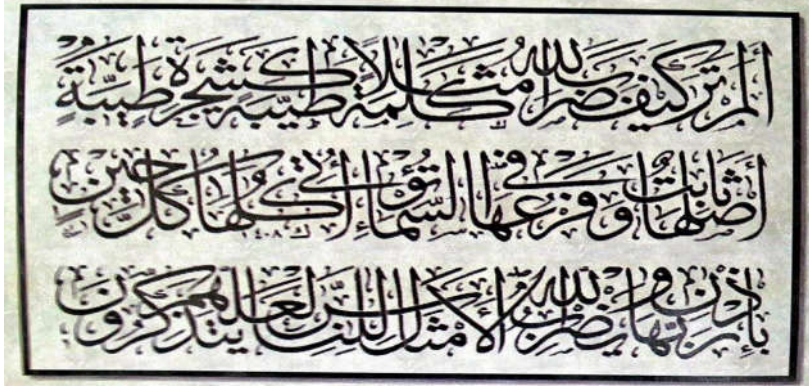 ألم تر كيف ضرب الله مثلا كلمة طيبة كشجرة طيبة
أصلها ثابت وفرعها في السماء تؤتي أكلها كل حين
بإذن ربها ويضرب الله الأمثال للناس لعلهم يتذكرون